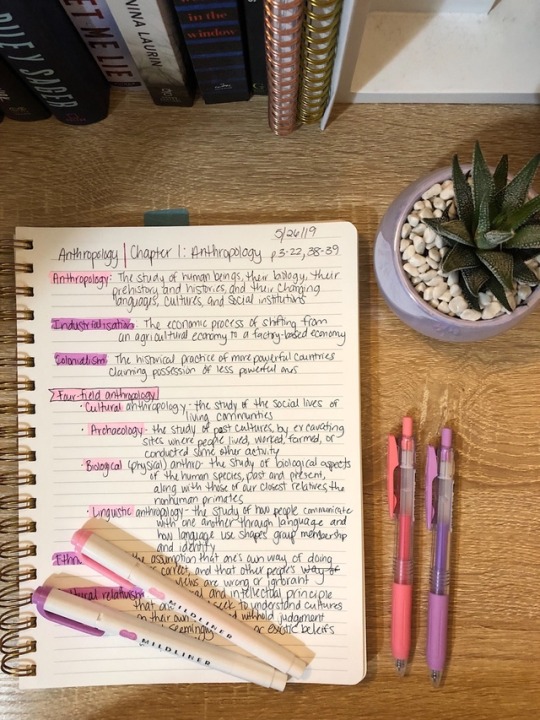 RILEY SAGER
NINA LAURIN
in the
window
5/26/19
Anthropology | Chapter 1: Anthropology p.3-22, 38-39
Anthropology: The study of human beings, their biology, their
prehistory and histories, and their changing
languages, cultures, and social institutions
Industrialisation: The economic process of shifting from
an agricultural economy to a factory-based economy
Colonialism: The historical practice of more powerful countries
claiming possession of less powerful ones
Four-field anthropology
· Cultural anthropology - the study of the social lives of
living communities
· Archaeology - the study of past cultures, by excavating
sites where people lived, worked, farmed, or
conducted some other activity
· Biological (physical) anthro - the study of biological aspects
of the human species, past and present,
along with those of our closest relatives, the
nonhuman primates
· Linguistic anthropology - the study of how people communicate
with one another through language and
how language use shapes group membership
and identity
the assumption that one's own way of doing
correct, and that other people's way of
views are wrong or ignorant
relativism and intellectual principle
that seek to understand cultures
on their own and withhold judgement
seemingly or exotic beliefs
MILDLINER
MILDLINER